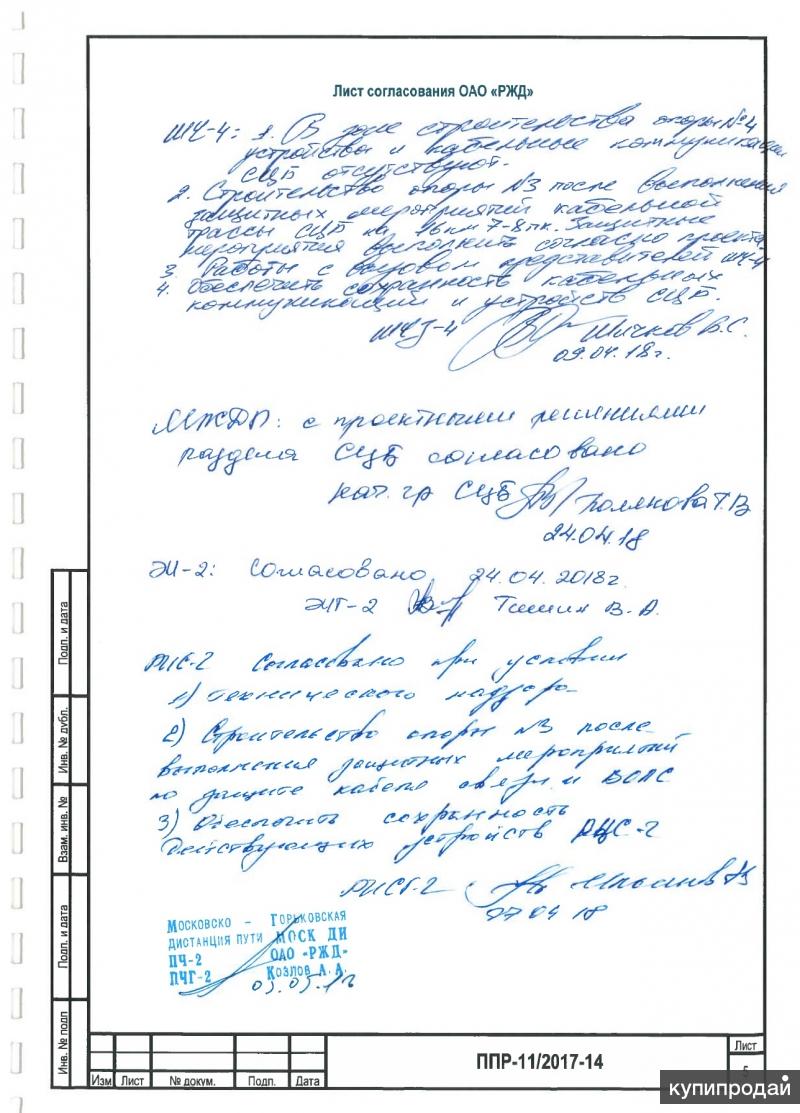 Лист согласования ОАО «РЖД»
ШЧ-4: 1. В зоне строительства опоры №4
устройства и кабельные коммуникации
СЦБ отсутствуют.
2. Строительство опоры №3 после выполнения
защитных мероприятий кабельной
трассы СЦБ на 16км 7-8пк. Защитные
мероприятия выполнить согласно проекта
3. Работы с вызовом представителей ШЧ-4
4. Обеспечить сохранность кабельных
коммуникаций и устройств СЦБ.
ШЧЗ-4 Шичков В.С.
09.04.18г.
МЖДП: с проектными решениями
раздела СЦБ согласовано
гр СЦБ Полякова Т.В
24.04.18
ЭЧ-2: Согласовано 24.04.2018г.
ЭЧГ-2 Тишин В.А.
РЦС-2 Согласовано при условии
1) технического надзора
2) Строительство опоры №3 после
выполнения защитных мероприятий
по защите кабеля связи и ВОЛС
3) Обеспечить сохранность
действующих устройств РЦС-2
27 04 18
МОСКОВСКО – ГОРЬКОВСКАЯ
ДИСТАНЦИЯ ПУТИ МОСК ДИ
ПЧ-2 ОАО «РЖД»
ПЧГ-2 КОЗЛОВ А. А.
Подп. и дата
Инв. № дубл.
Взам. инв. №
Подп. и дата
Инв. № подп
Изм Лист № докум. Подп. Дата
ППР-11/2017-14
Лист
5
купипродай